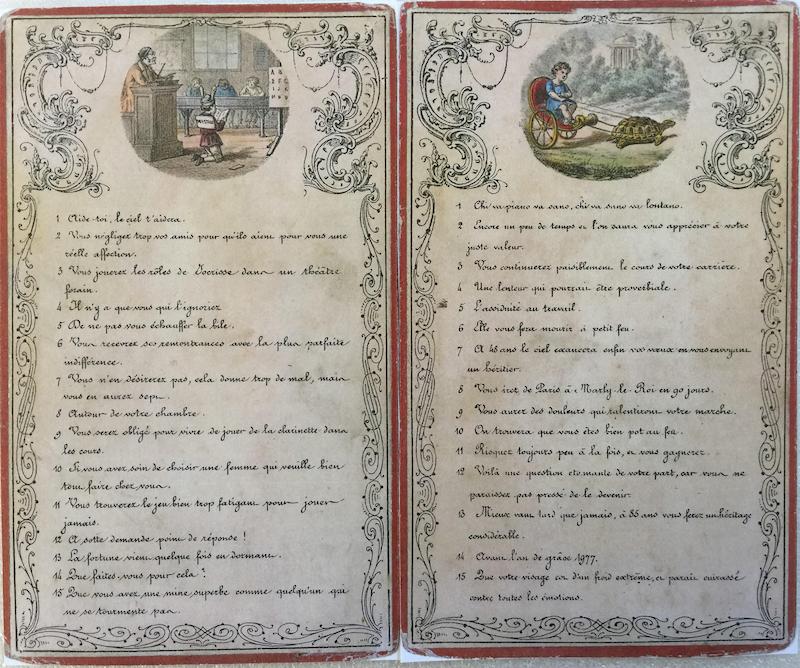 1 Aide-toi, le ciel t'aidera.
2 Vous négligez trop vos amis pour qu'ils aient pour vous une
réelle affection.
3 Vous jouerez les rôles de Jocrisse dans un théâtre
forain.
4 Il n'y a que vous qui l'ignoriez
5 De ne pas vous échauffer la bile.
6 Vous recevrez ses remontrances avec la plus parfaite
indifférence.
7 Vous n'en désirerez pas, cela donne trop de mal, mais
vous en aurez sept.
8 Autour de votre chambre.
9 Vous serez obligé pour vivre de jouer de la clarinette dans
les cours.
10 Si vous avez soin de choisir une femme qui veuille bien
tout faire chez vous.
11 Vous trouverez le jeu bien trop fatigant pour jouer
jamais.
12 A sotte demande point de réponse !
13 La fortune vient quelque fois en dormant.
14 Que faites-vous pour cela ?
15 Que vous avez une mine superbe comme quelqu'un qui
ne se tourmente pas.
1 Chi va piano va sano, chi va sano va lontano.
2 Encore un peu de temps et l'on saura vous apprécier à votre
juste valeur.
3 Vous continuerez paisiblement le cours de votre carrière.
4 Une lenteur qui pourrait être proverbiale.
5 L'assiduité au travail.
6 Elle vous fera mourir à petit feu.
7 A 45 ans le ciel exaucera enfin vos vœux en vous envoyant
un héritier.
8 Vous irez de Paris à Marly-le-Roi en 90 jours.
9 Vous aurez des douleurs qui ralentiront votre marche.
10 On trouvera que vous êtes bien pot au feu.
11 Risquez toujours peu à la fois, et vous gagnerez.
12 Voilà une question étonnante de votre part, car vous ne
paraissez pas pressé de le devenir.
13 Mieux vaut tard que jamais, à 85 ans vous ferez un héritage
considérable.
14 Avant l'an de grâse 1977.
15 Que votre visage est d'un froid extrême, et parait cuirassé
contre toutes les émotions.